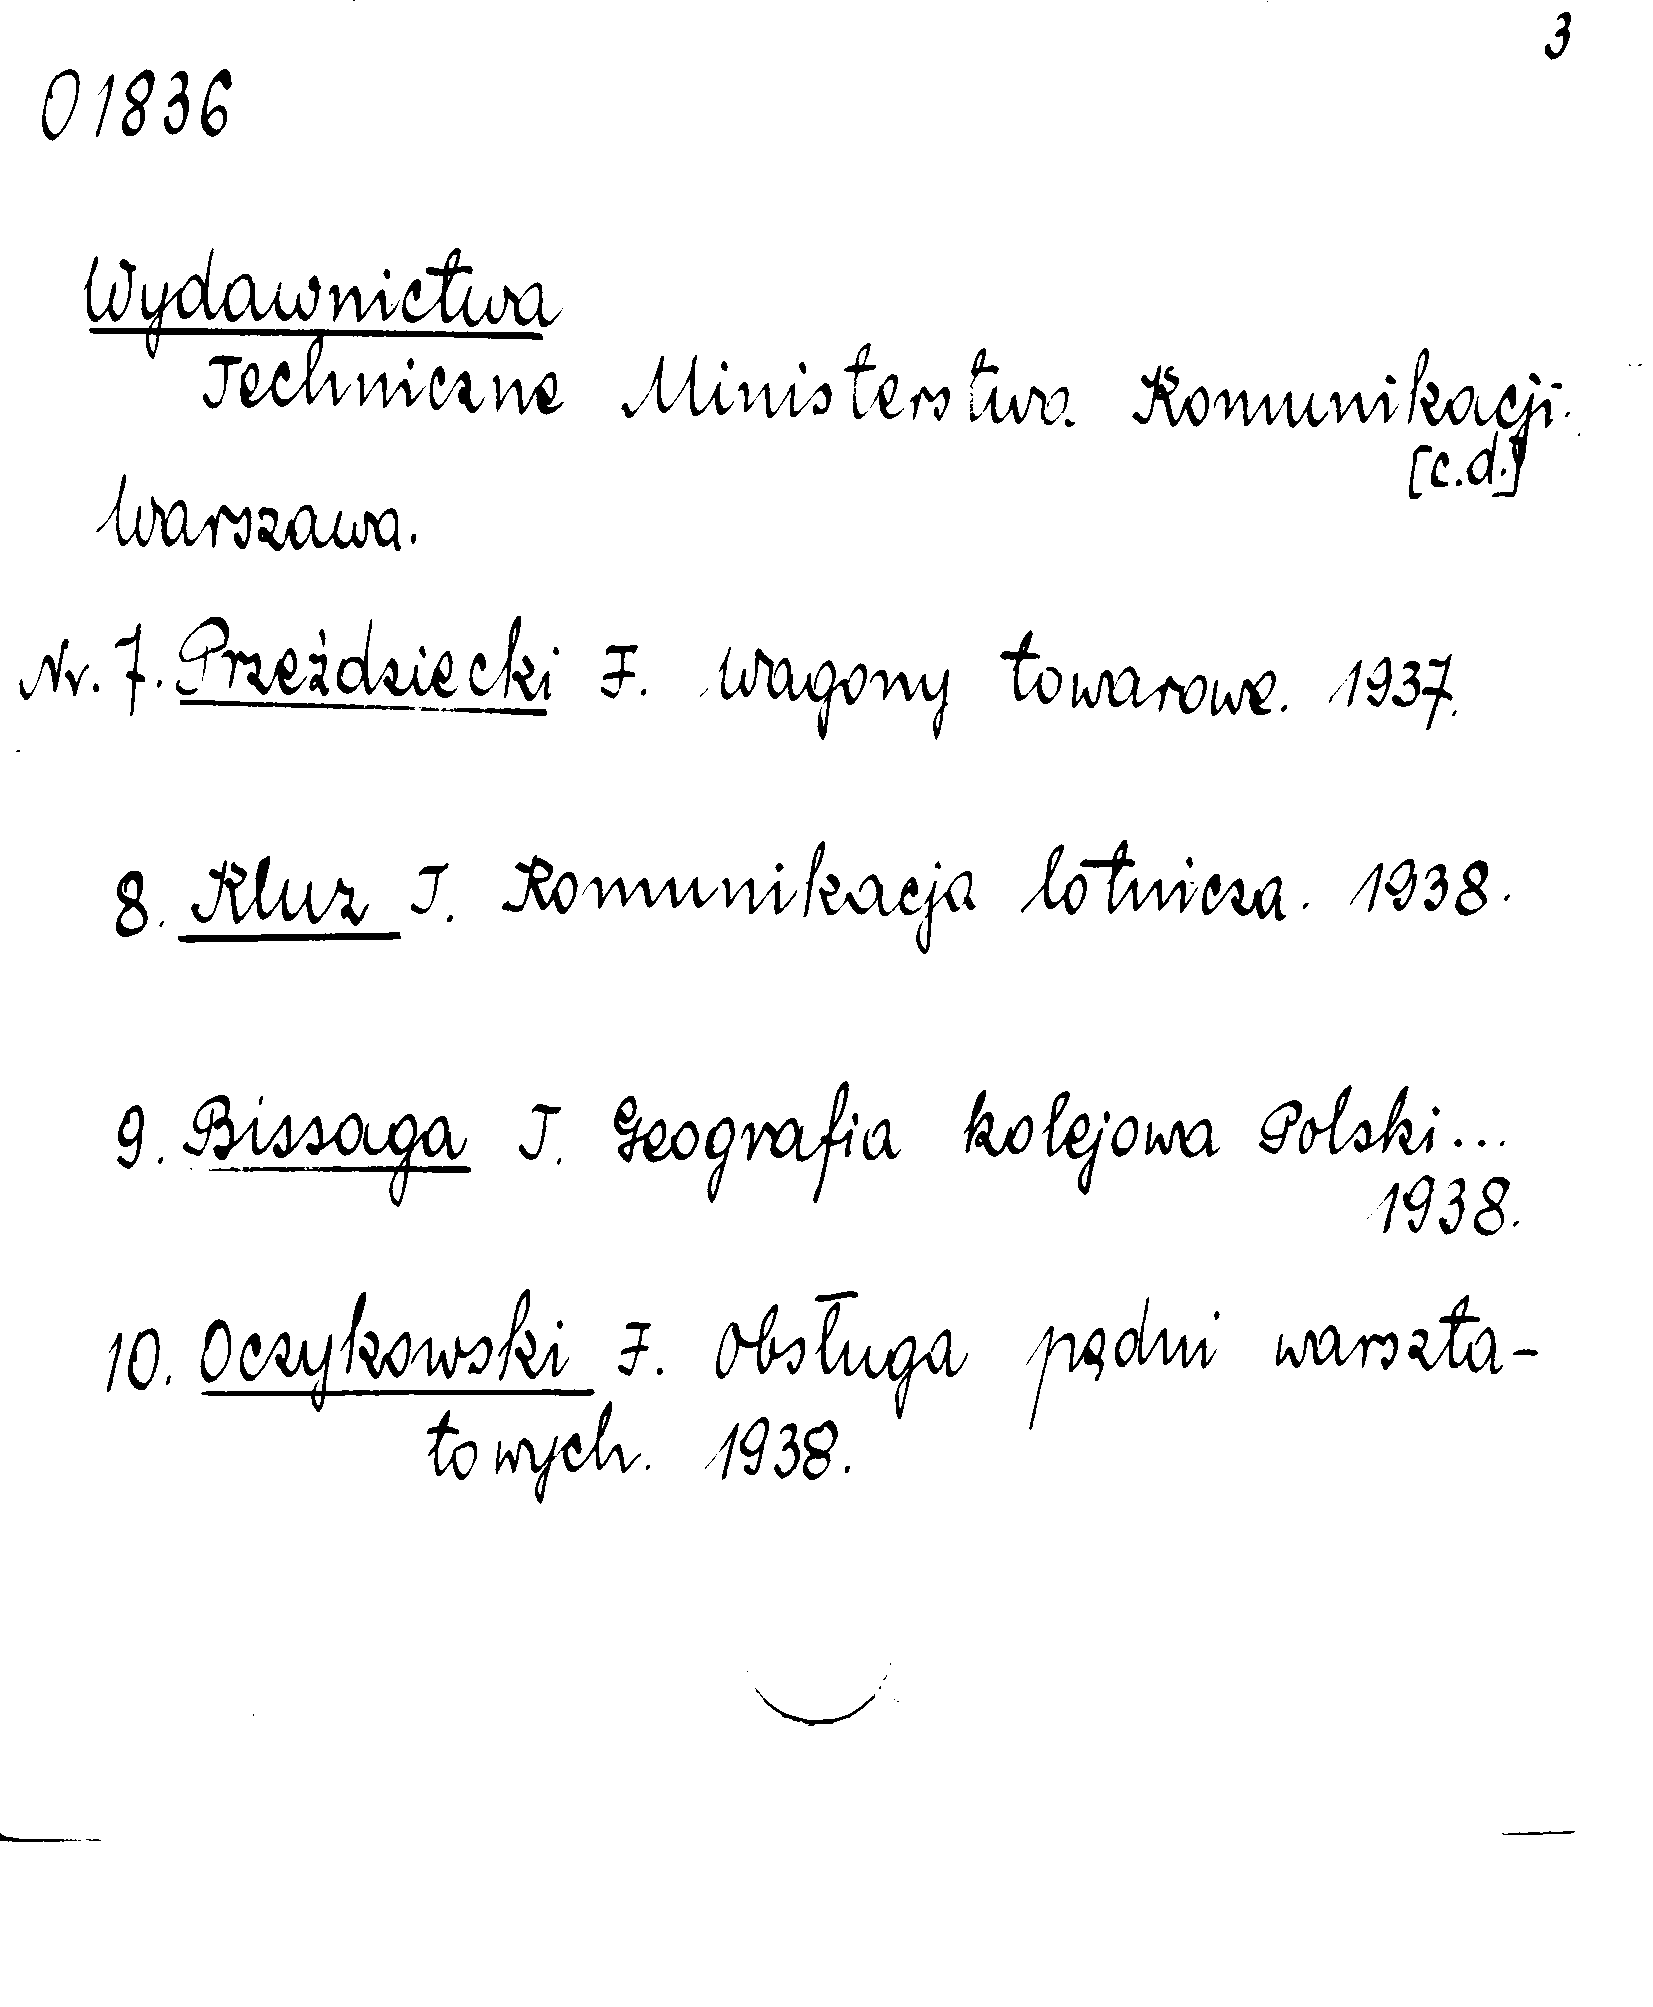 3
01836
Wydawnictwa
Techniczne Ministerstwa Komunikacji.
[c.d.]
Warszawa.
Nr. 7. Przeździecki F. Wagony towarowe. 1937.
8. Kluz T. Komunikacja lotnicza. 1938.
9. Bissaga T. Geografia kolejowa Polski...
1938.
10. Oczykowski F. Obsługa pędni warszta-
towych. 1938.